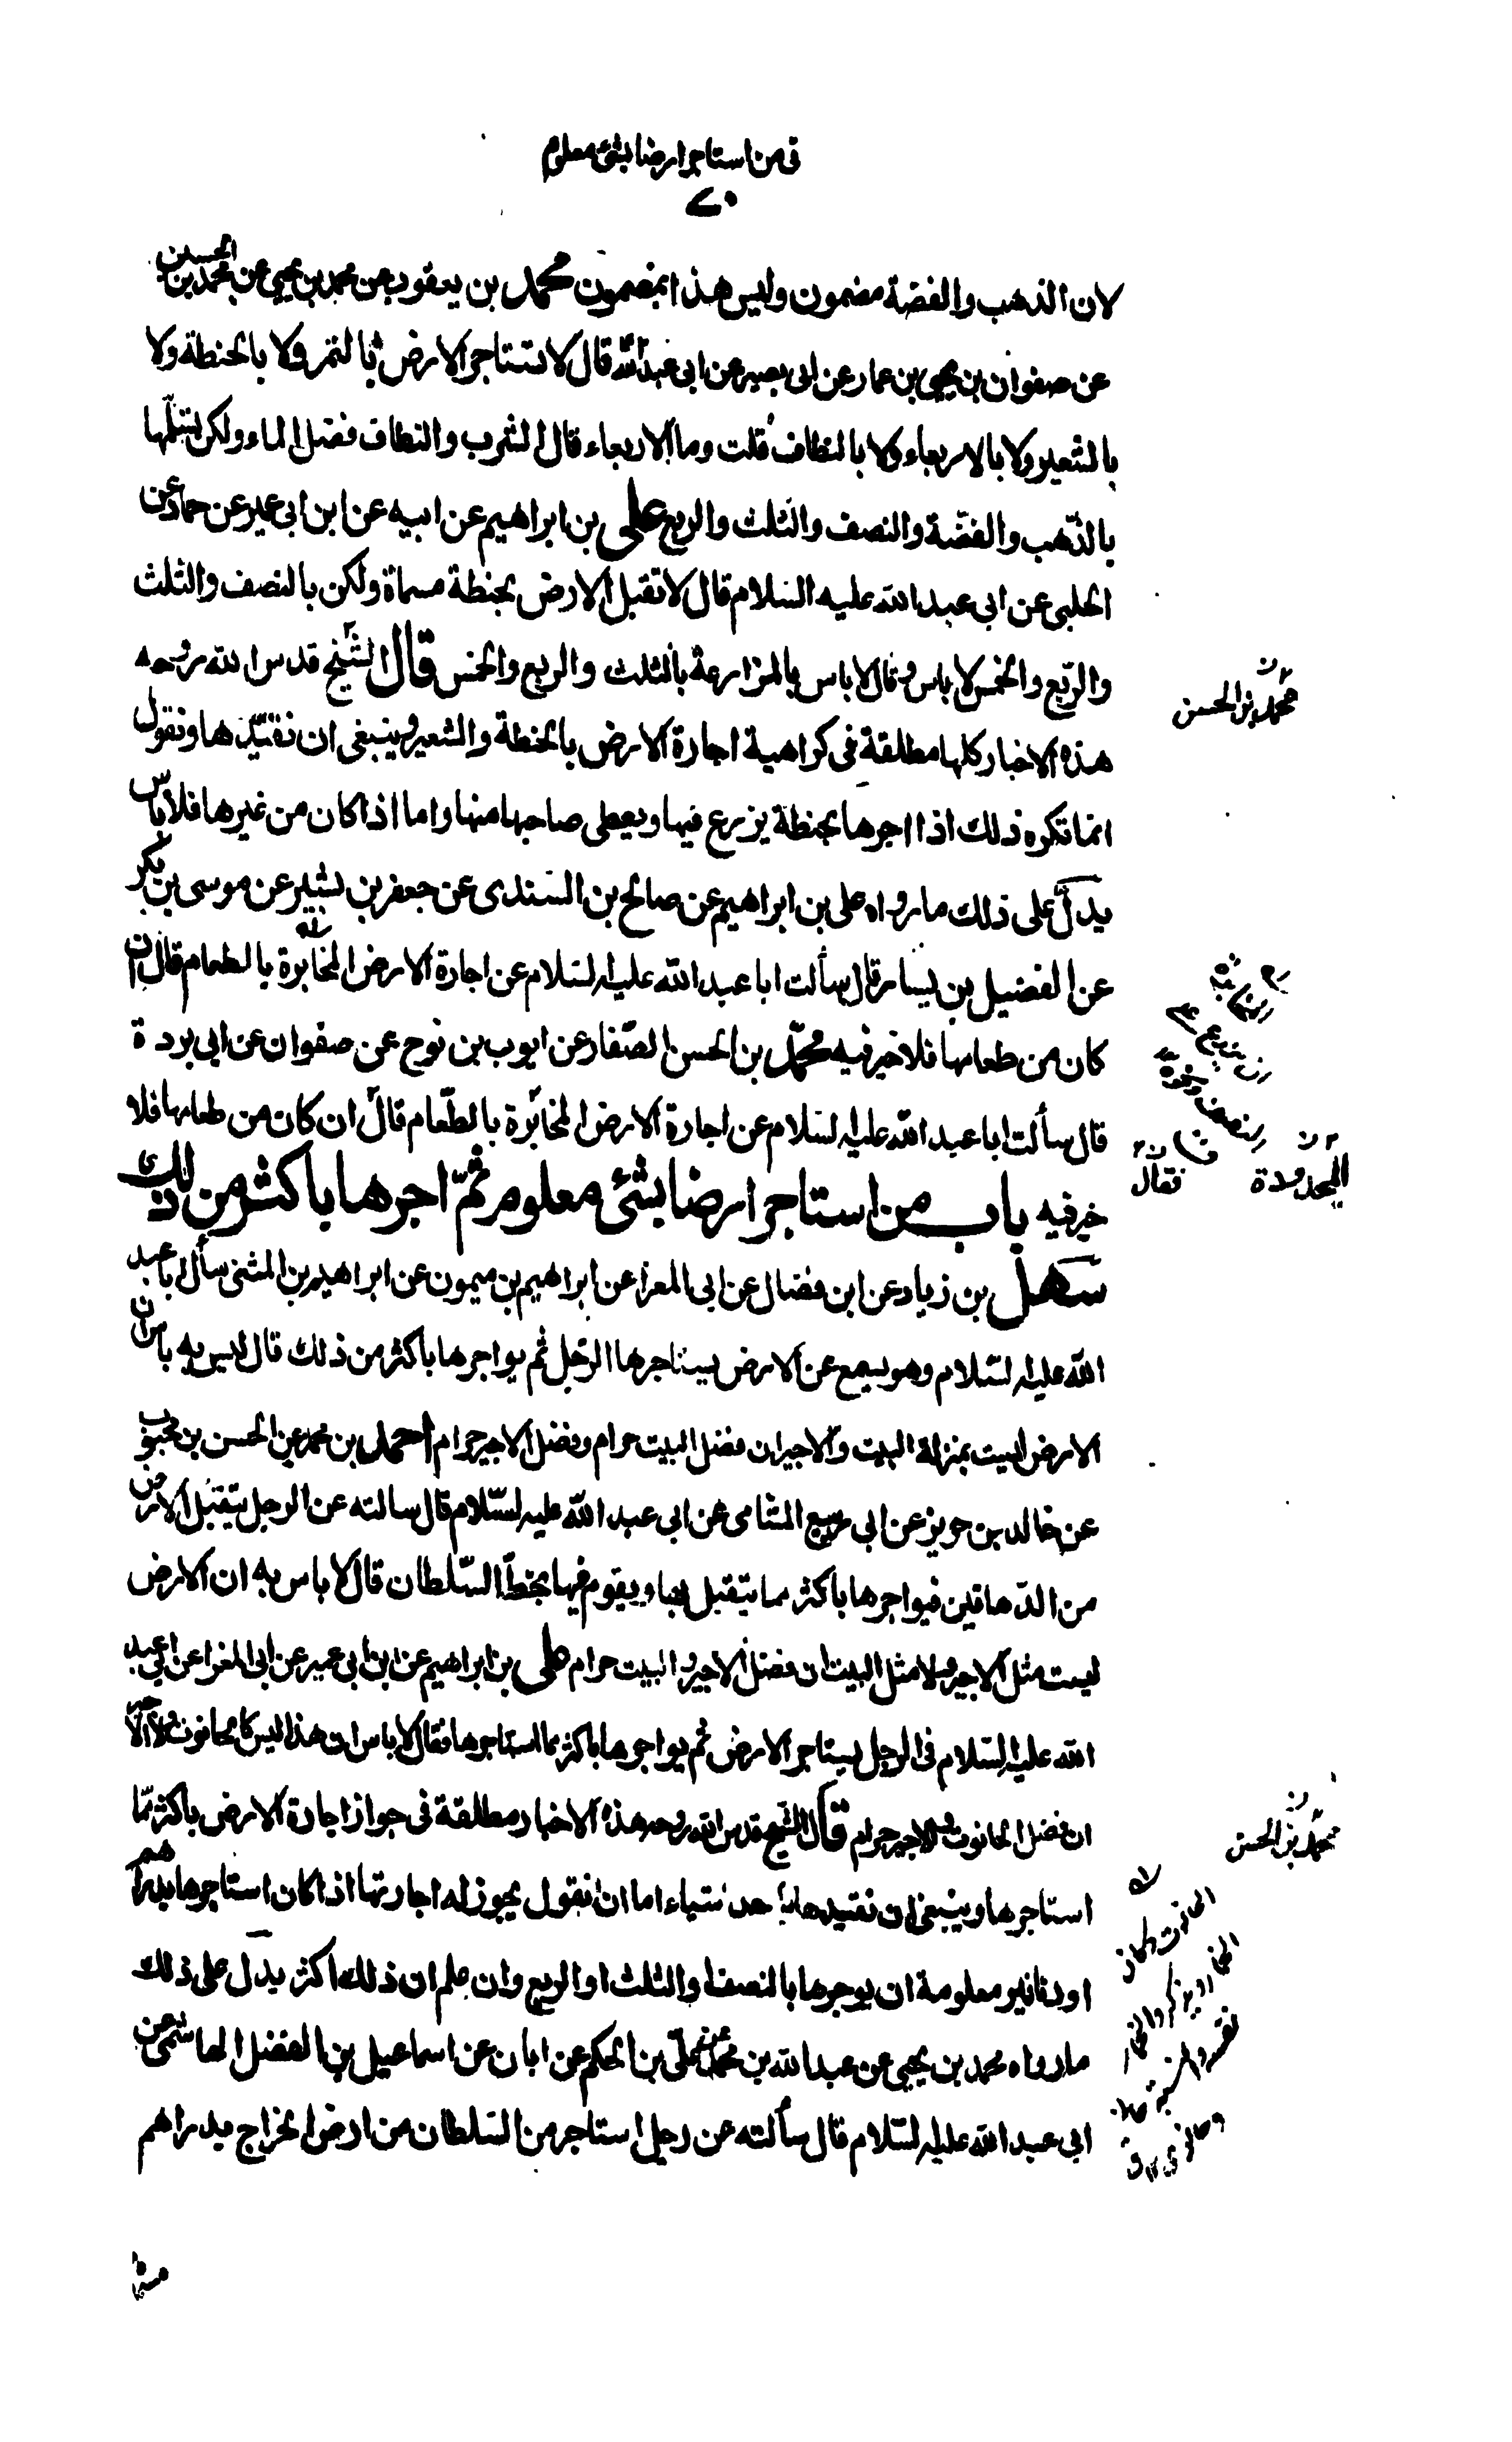 فى من استاجر ارضا بشئ معلوم
لان الذهب والفضة مضمون وليس هذا بمضمون محمد بن يعقوب عن محمد بن يحيى عن محمد بن الحسين
عن صفوان بن يحيى بن عمار عن ابى بصير عن ابى عبدالله قال لا تستاجر الارض بالتمر ولا بالحنطة ولا
بالشعير ولا بالاربعاء ولا بالنطاف قلت وما الاربعاء قال الشرب والنطاف فضل الماء ولكن تقبلها
بالذهب والفضة والنصف والثلث والربع على بن ابراهيم عن ابيه عن ابن ابى عمير عن حماد عن
الحلبى عن ابى عبد الله عليه السلام قال لا تقبل الارض بحنطة مسماة ولكن بالنصف والثلث
والربع والخمس لا باس وقال لا باس بالمزارعة بالثلث والربع والخمس قال الشيخ قدس الله روحه
هذه الاخبار كلها مطلقة فى كراهية اجارة الارض بالحنطة والشعير وينبغى ان نقيدها ونقول
انما تكره ذلك اذا اجرها بحنطة يزرع فيها ويعطى صاحبها منها واما اذا كان من غيرها فلا باس
يدل على ذلك ما رواه على بن ابراهيم عن صالح بن السندى عن جعفر بن بشير عن موسى بن بكر
عن الفضيل بن يسار قال سألت ابا عبد الله عليه السلام عن اجارة الارض المخابرة بالطعام قال ان
كان من طعامها فلا خير فيه محمد بن الحسن الصفار عن ايوب بن نوح عن صفوان عن ابى بردة
قال سألت ابا عبد الله عليه السلام عن اجارة الارض المخابرة بالطعام قال ان كان من طعامها فلا
خير فيه باب من استاجر ارضا بشئ معلوم ثم اجرها باكثر من ذلك
سهل بن زياد عن ابن فضال عن ابى المعزا عن ابراهيم بن ميمون عن ابراهيم بن المثنى سأل ابا عبد
الله عليه السلام وهو يسمع عن الارض يستاجرها الرجل ثم يواجرها باكثر من ذلك قال ليس به باس ان
الارض ليست بمنزلة البيت والاجير ان فضل البيت حرام وفضل الاجير حرام احمد بن محمد عن الحسن بن محبوب
عن خالد بن حريز عن ابى ربيع الشامى عن ابى عبد الله عليه السلام قال سالته عن الرجل يتقبل الارض
من الدهاقين فيواجرها باكثر مما يتقبل بها ويقوم فيها بحظ السلطان قال لا باس به ان الارض
ليست مثل الاجير ولا مثل البيت ان فضل الاجير والبيت حرام على بن ابراهيم عن ابن ابى عمير عن ابى المغرا عن ابى عبد
الله عليه السلام فى الرجل يستاجر الارض ثم يواجرها باكثر مما استاجرها فقال لا باس ان هذا ليس كالحانوت ولا الاجير
ان فضل الحانوت والاجير حرام قال الشيخ قدس الله روحه هذه الاخبار مطلقة فى جواز اجارة الارض باكثر مما
استاجرها وينبغى ان نقيدها باحد اشياء اما ان نقول يجوز له اجارتها اذا كان استاجرها بدراهم
او دنانير معلومة ان يوجرها بالنصف او الثلث او الربع وان علم ان ذلك اكثر يدل على ذلك
ما رواه محمد بن يحيى عن عبد الله بن محمد عن على بن الحكم عن ابان عن اسماعيل بن الفضل الهاشمى عن
ابى عبد الله عليه السلام قال سألته عن رجل استاجر من السلطان من ارض الخراج بدراهم
محمد بن الحسن
المحدودة فقال
محمد بن الحسن